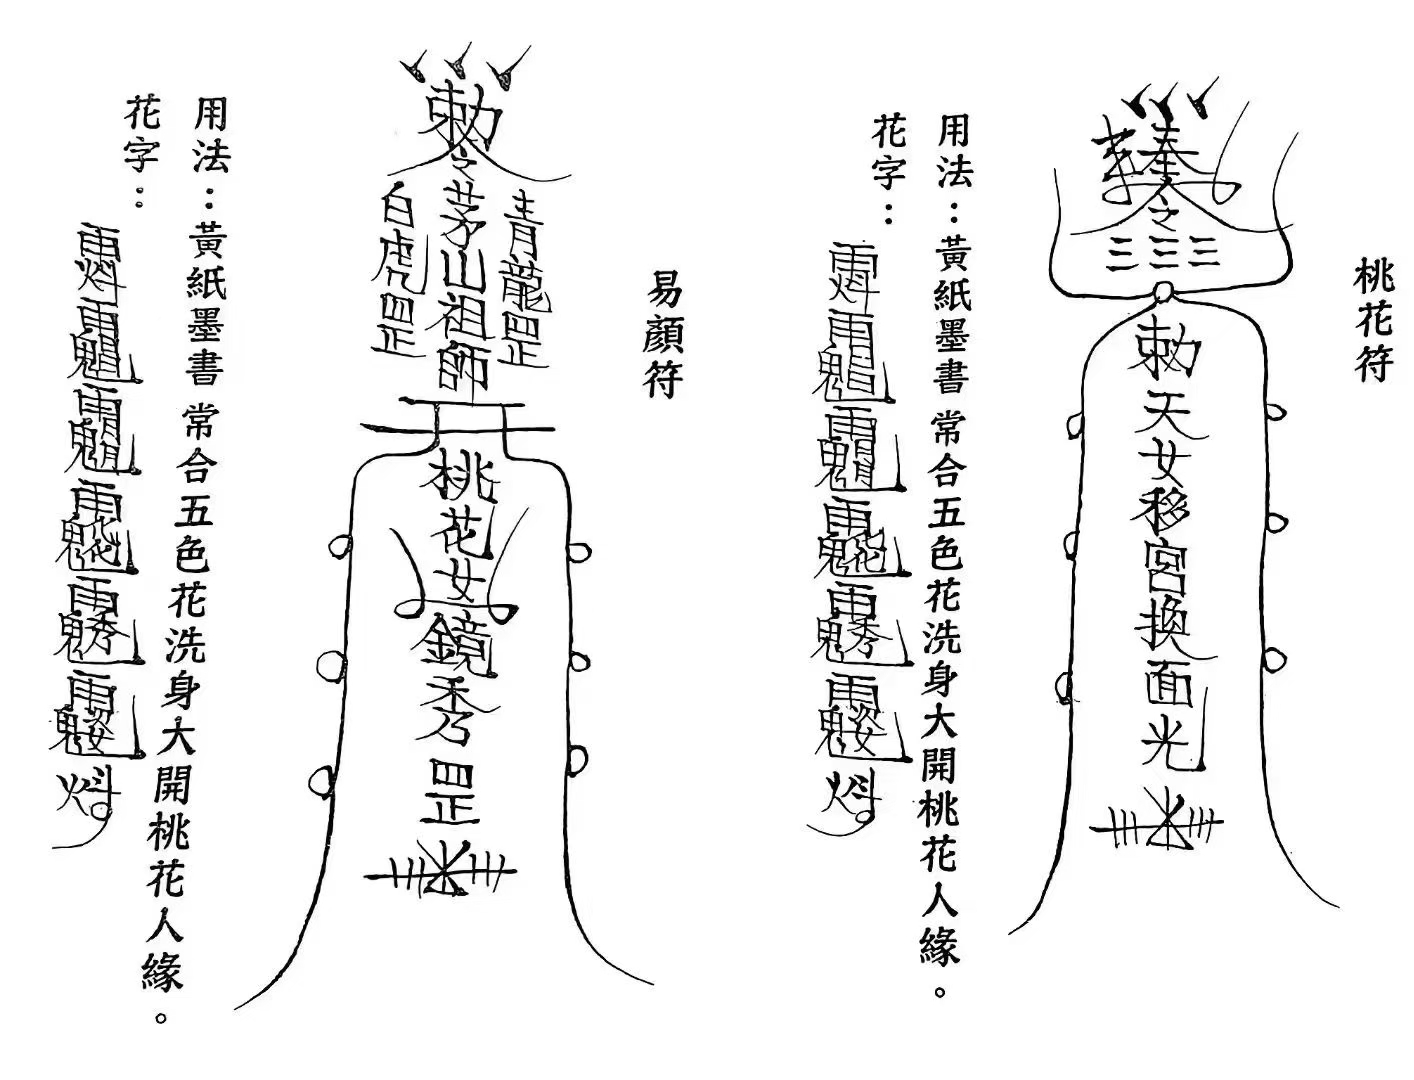 桃花符
奉
之
三三三
勅天女移宮換面光
用法：黃紙墨書常合五色花洗身大開桃花人緣。
花字：
易顏符
勅之茅山祖師
青龍罡
白虎罡
桃花女鏡秀罡
用法：黃紙墨書常合五色花洗身大開桃花人緣。
花字：